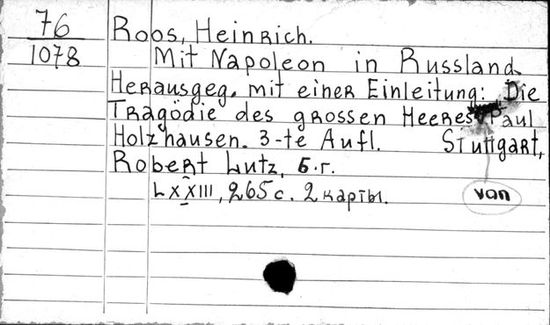 76
1078
Roos, Heinrich.
Mit Napoleon in Russland
Herausgeg. mit einer Einleitung: Die
Tragödie des grossen Heeres Paul
Holzhausen. 3-te Aufl. Stuttgart,
Robert Lutz, б.г.
LXXIII, 265 с. 2 карты.
von